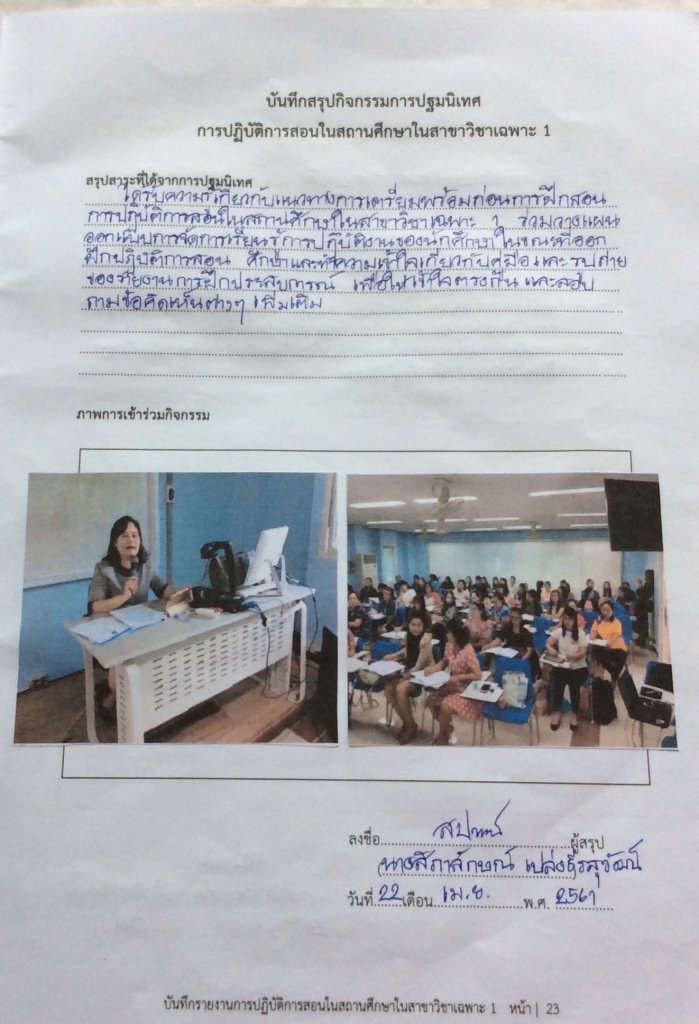 บันทึกสรุปกิจกรรมการปฐมนิเทศ
การปฏิบัติการสอนในสถานศึกษาในสาขาวิชาเฉพาะ 1
สรุปสาระที่ได้จากการปฐมนิเทศ
ได้รับความรู้เกี่ยวกับแนวทางการเตรียมพร้อมก่อนการฝึกสอน
การปฏิบัติการสอนในสถานศึกษาในสาขาวิชาเฉพาะ 1 ร่วมวางแผน
ออกแบบการจัดการเรียนรู้การปฏิบัติงานของนักศึกษาในขณะที่ออก
ฝึกปฏิบัติการสอน ศึกษาและทำความเข้าใจเกี่ยวกับคู่มือและรูปถ่าย
ของรายงานการฝึกประสบการณ์ เพื่อให้เข้าใจตรงกัน และสอบ
ถามข้อคิดเห็นต่างๆ เพิ่มเติม
ภาพการเข้าร่วมกิจกรรม
ลงชื่อ ผู้สรุป
วันที่ 22 เดือน เม.ย. พ.ศ. 2561
บันทึกรายงานการปฏิบัติการสอนในสถานศึกษาในสาขาวิชาเฉพาะ 1 หน้า | 23